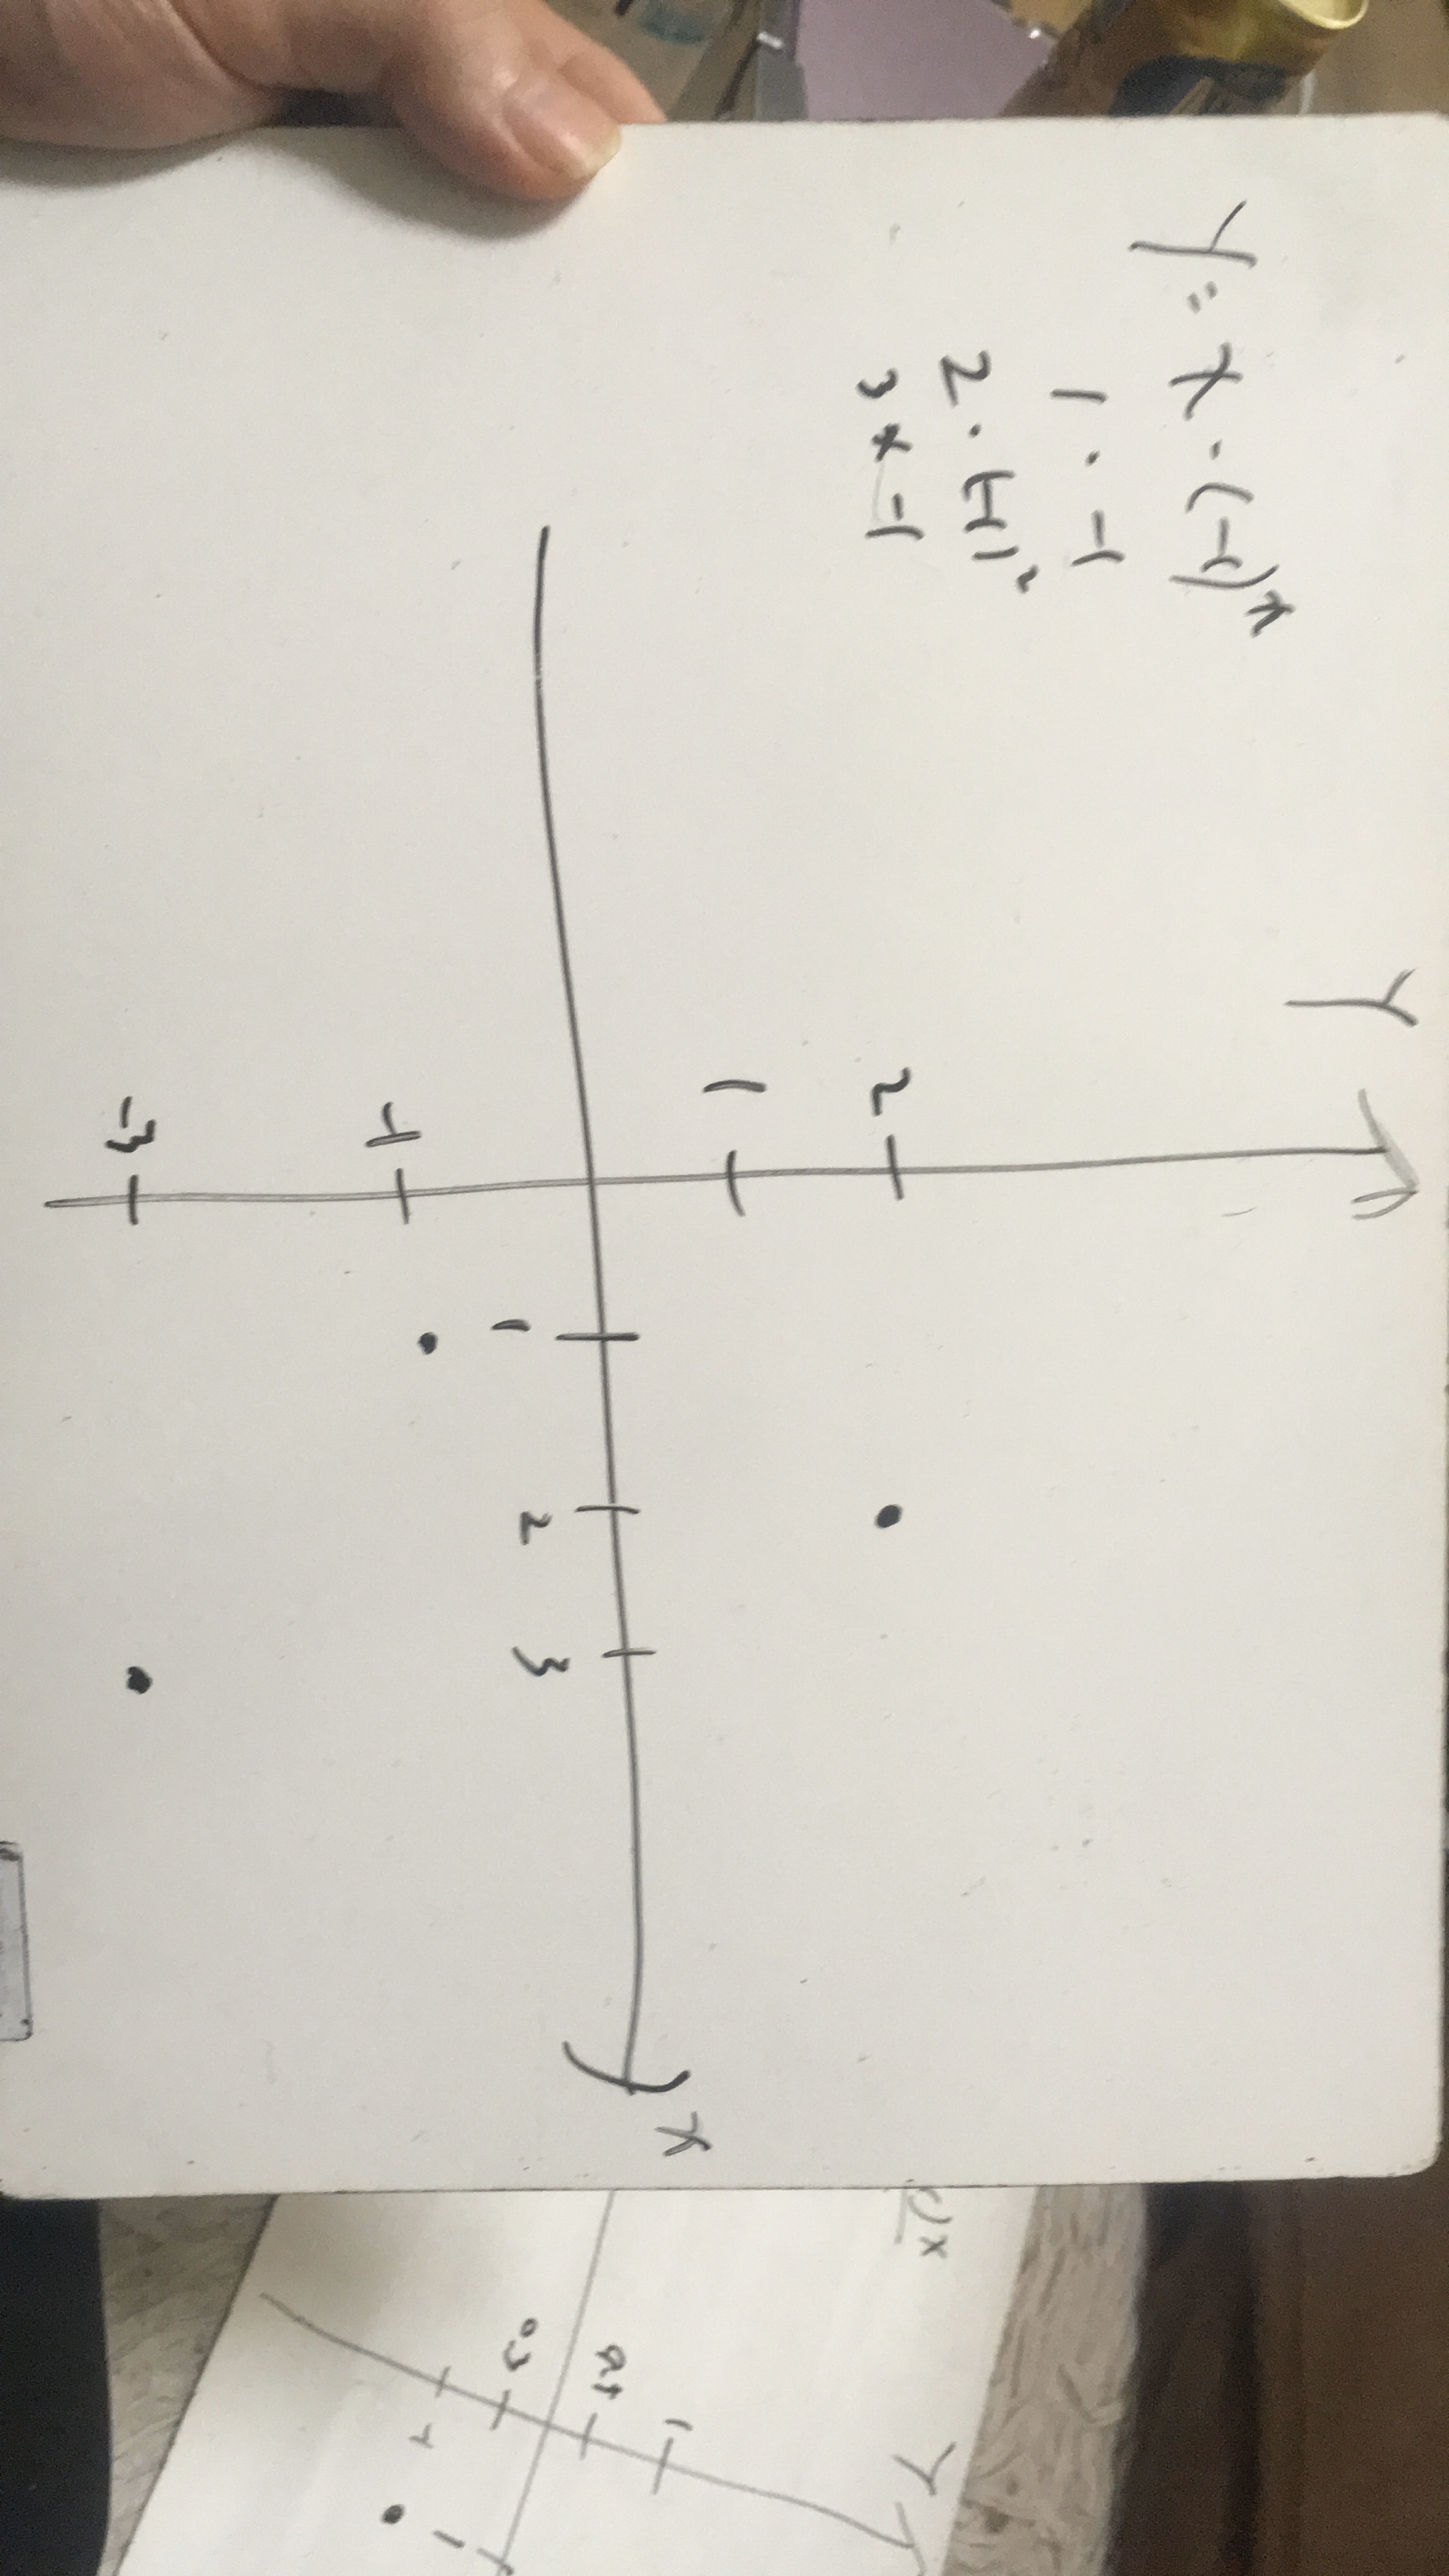 y = x · (-1)^x
1 · -1
2 · (-1)²
3 x -1
y
2
1
-1
-3
1
2
3
x
x
y
1
-1
1